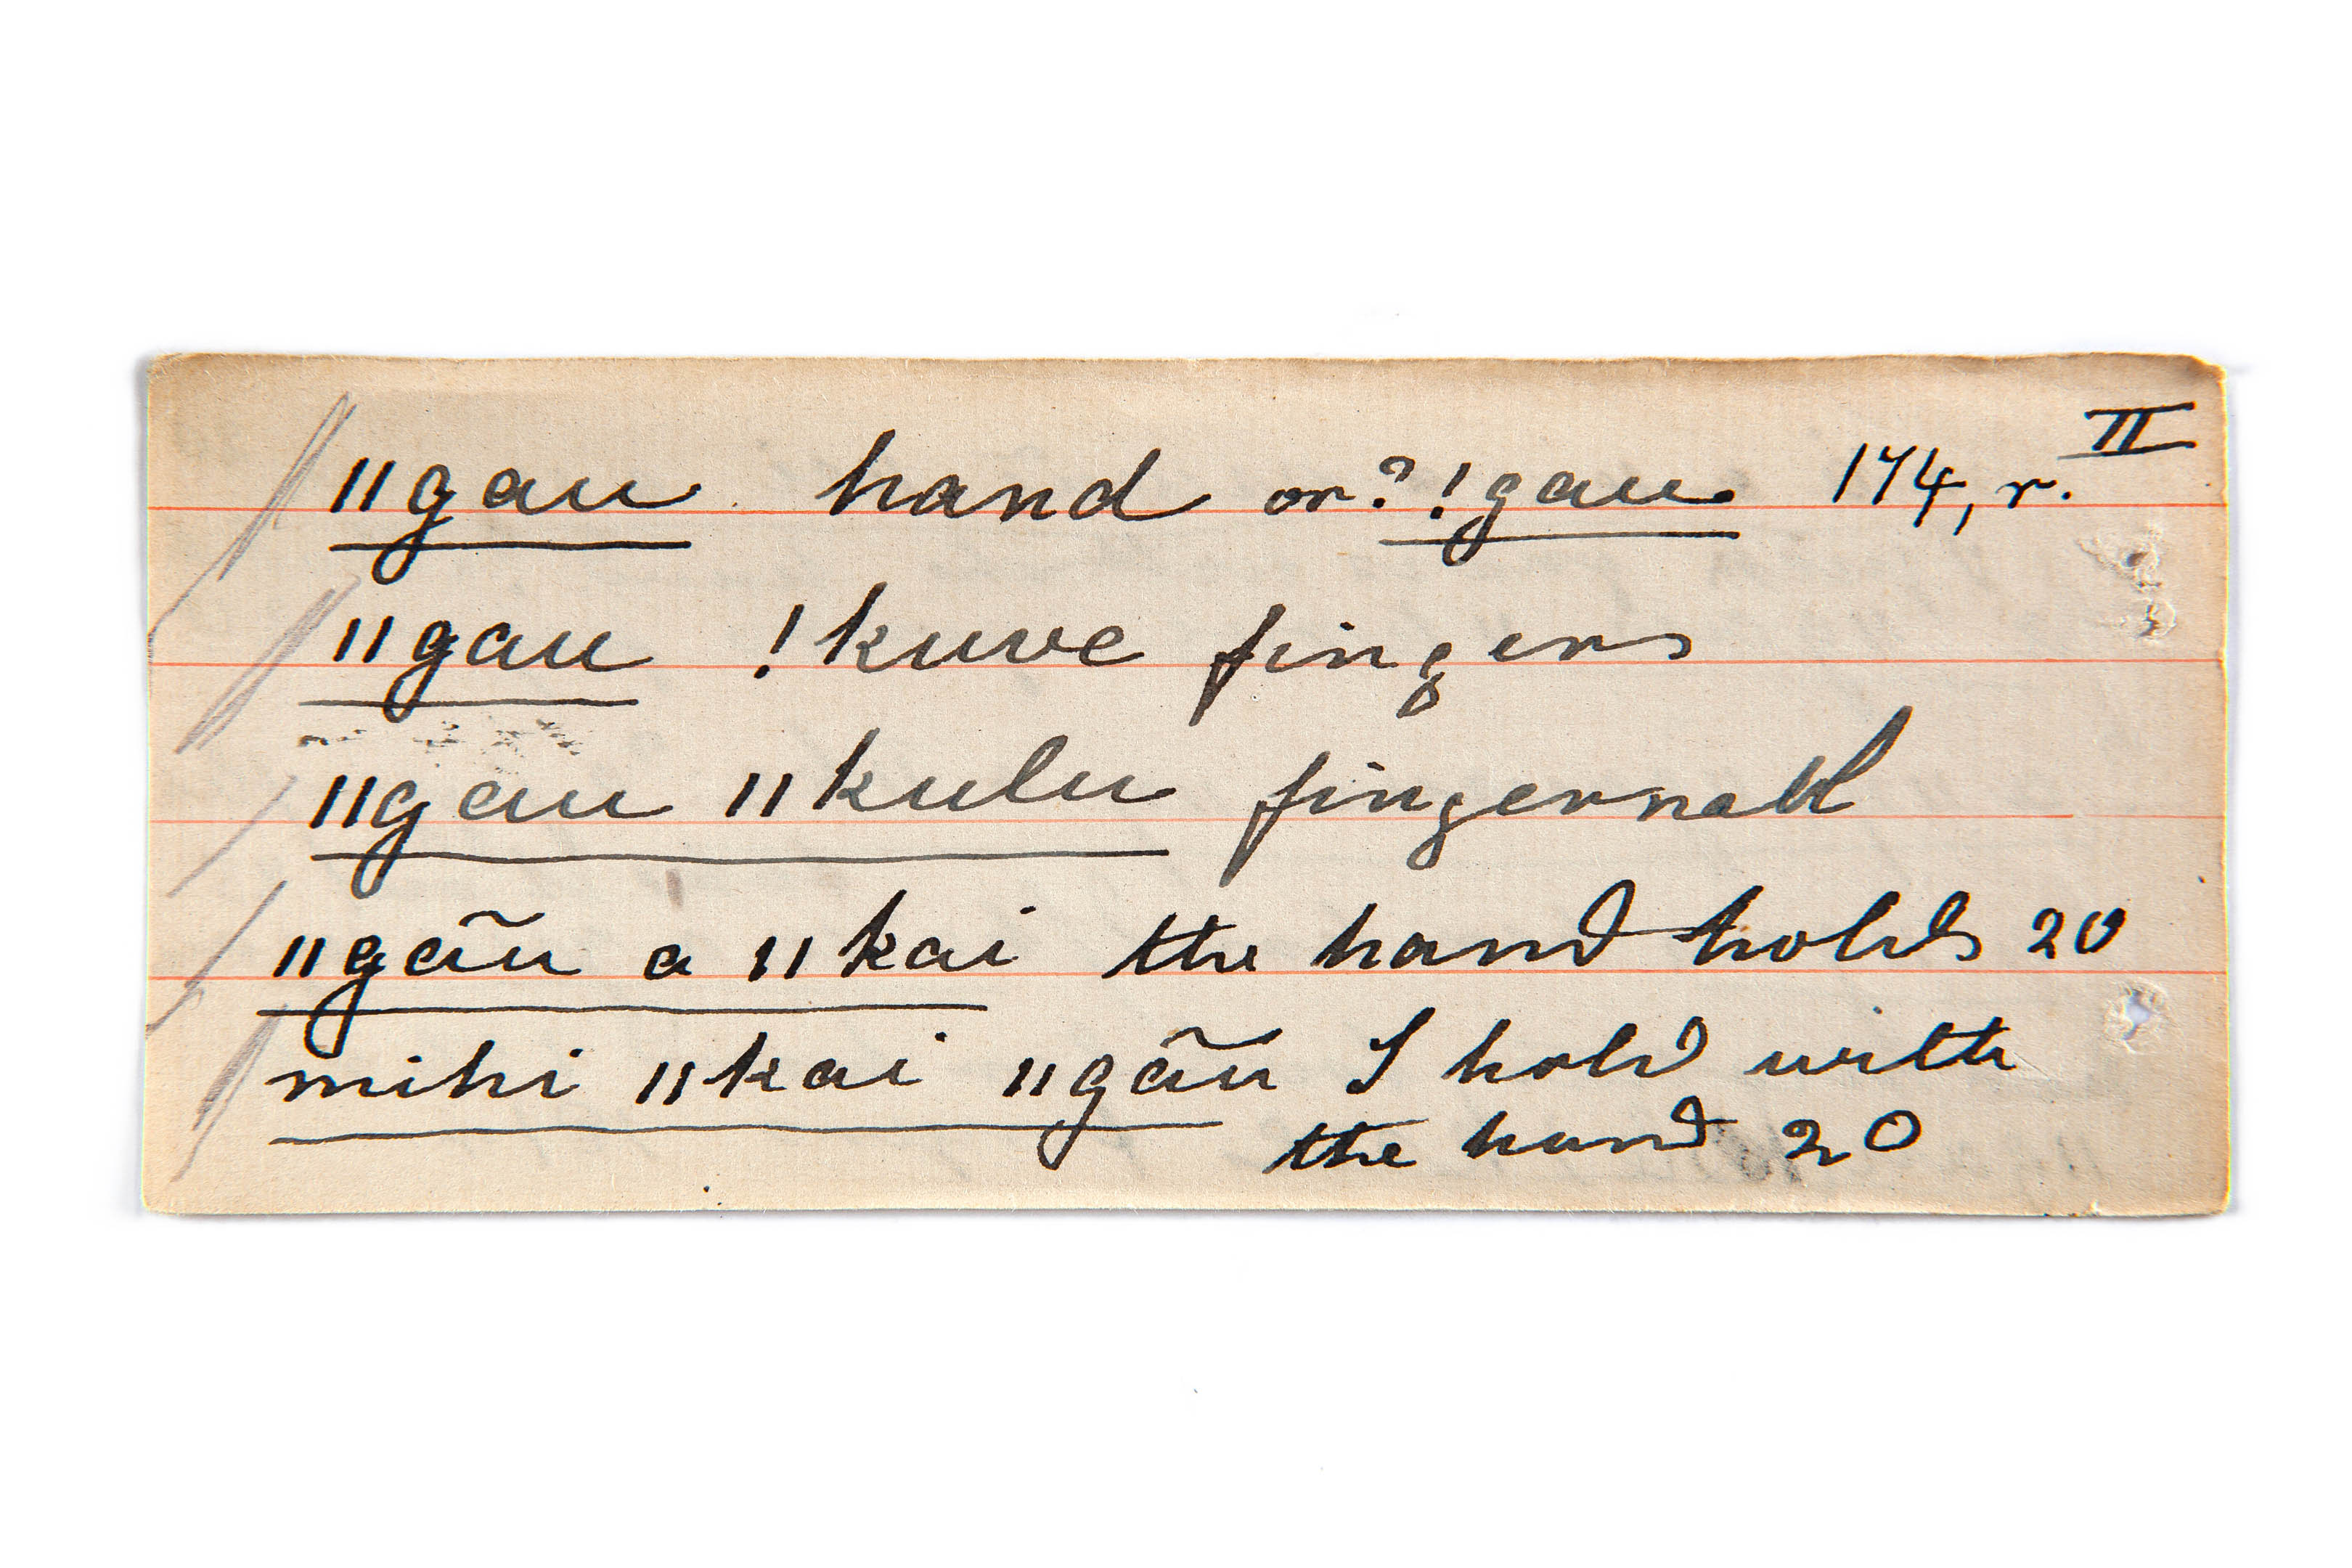 II
ǁgau hand or? !gau. 174, r.
ǁgau !kuve fingers
ǁgau ǁkulu fingernail
ǁgãu a ǁkai the hand holds 20
mihi ǁkai ǁgãu I hold with
the hand 20